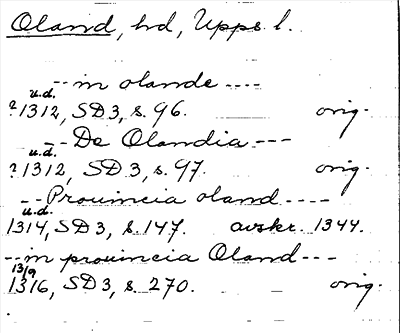 Oland, hd, Upps. l.
-- in olande ----
u.d.
? 1312, SD 3, s. 96. orig.
u.d.
-- De Olandia ---
? 1312, SD 3, s. 97. orig.
-- Prouincia oland ----
u.d.
1314, SD 3, s. 147. avskr. 1344.
-- in prouincia Oland ---
13/9
1316, SD 3, s. 270. orig.